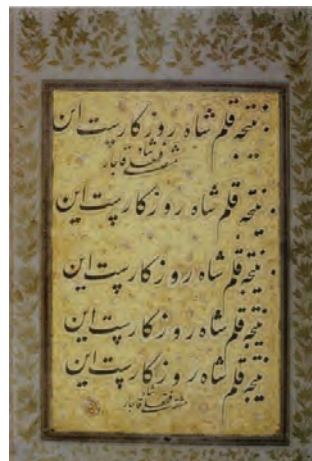 نتیجه قلم شاه روزگارست این
مشق فتحعلی شاه قاجار
نتیجه قلم شاه روزگارست این
نتیجه قلم شاه روزگارست این
نتیجه قلم شاه روزگارست این
نتیجه قلم شاه روزگارست این
مشق فتحعلی شاه قاجار